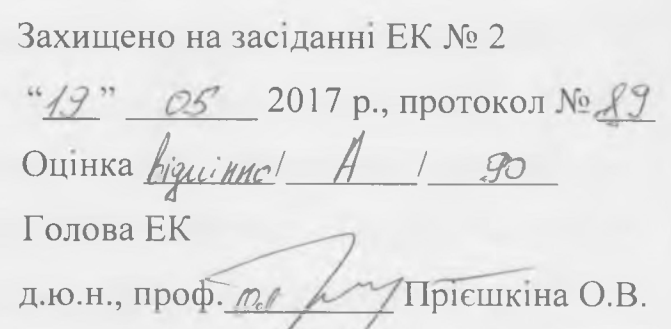 Захищено на засіданні ЕК № 2
“19” 05 2017 р., протокол № 89
Оцінка відмінно/ А / 90
Голова ЕК
д.ю.н., проф. Прієшкіна О.В.